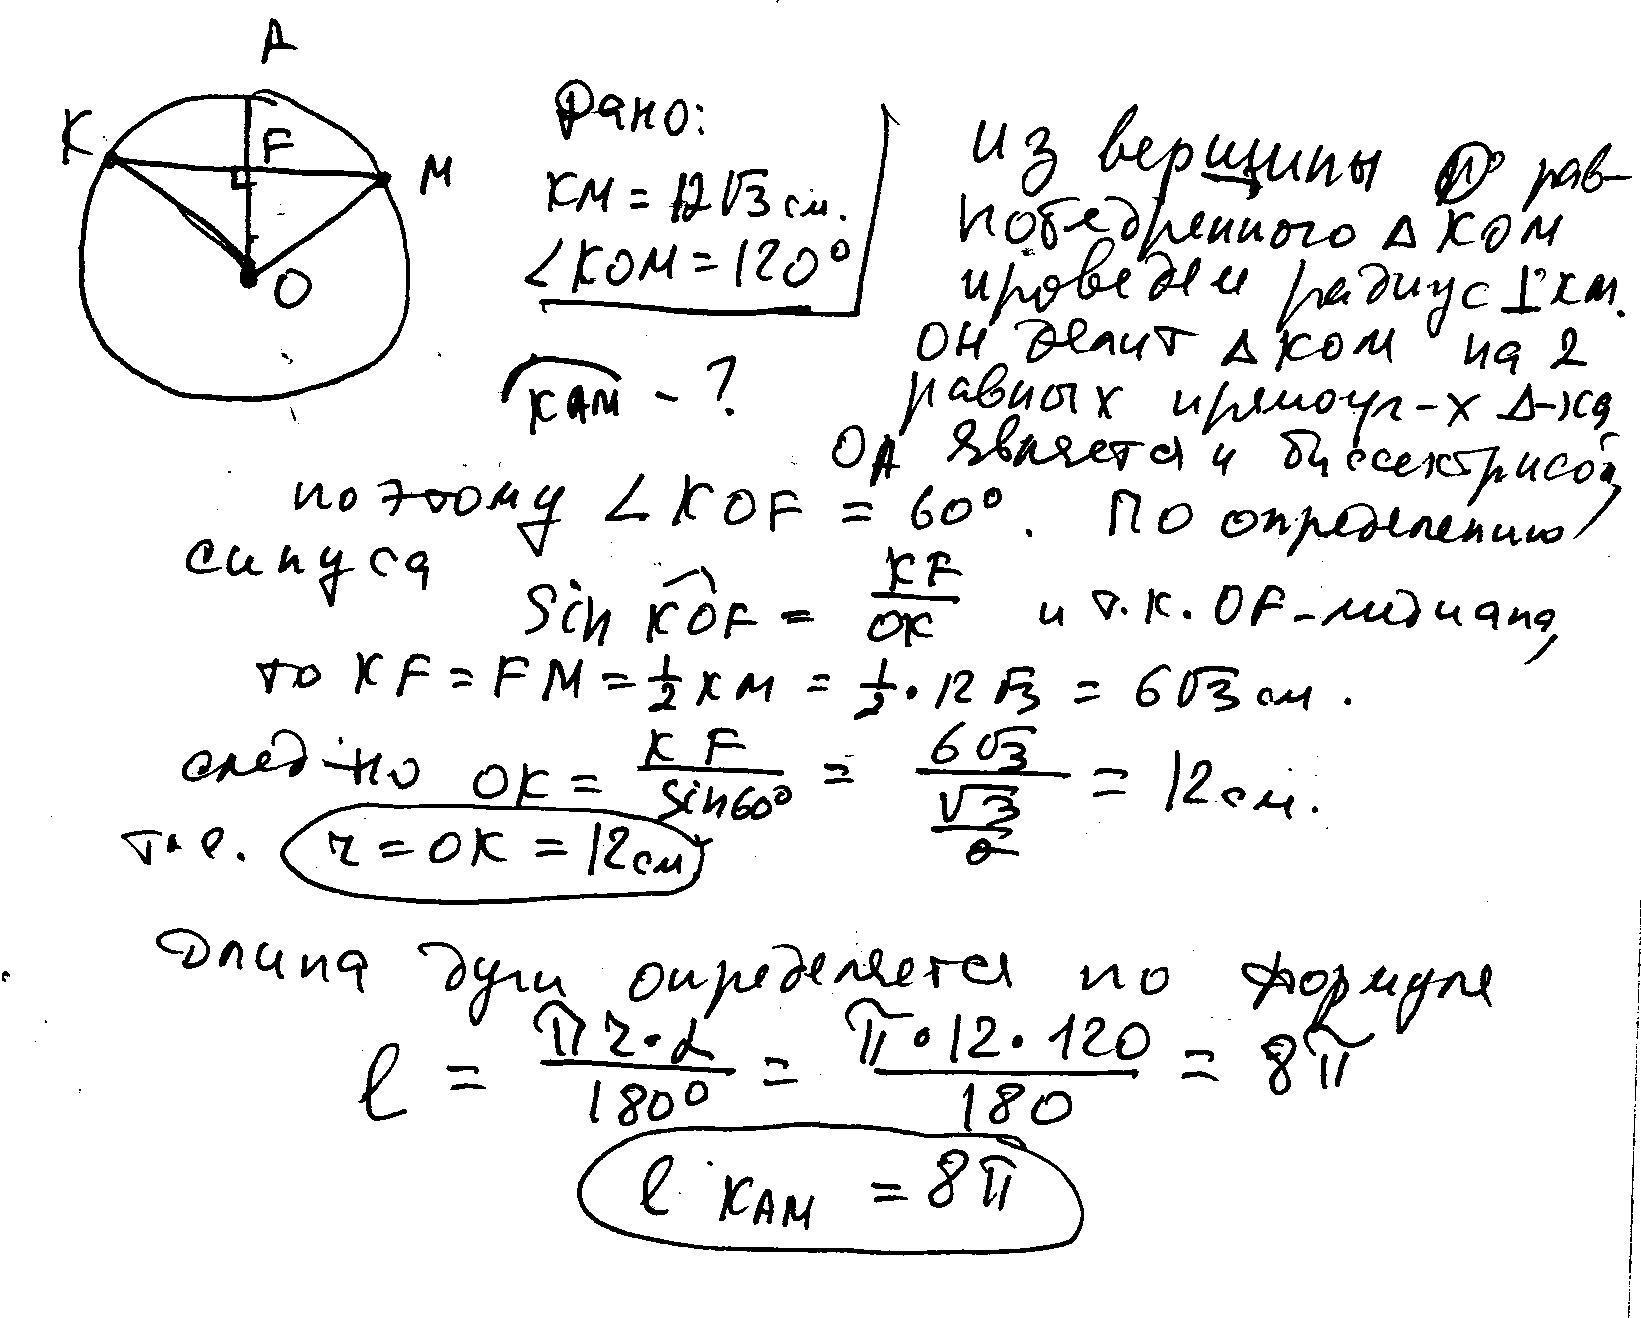 A
K
F
M
O
Дано:
KM = 12√3 см.
∠KOM = 120°
KAM - ?
Из вершины O рав-
нобедренного ΔKOM
проведем радиус ⊥ KM.
Он делит ΔKOM на 2
равных прямоуг-х Δ-ка
OA является и биссектрисой,
поэтому ∠KOF = 60°. По определению
синуса
Sin KOF = KF/OK и т.к. OF - медиана,
то KF = FM = 1/2 KM = 1/2 · 12√3 = 6√3 см.
след-но OK = KF/Sin60° = 6√3/(√3/2) = 12 см.
т.е. r = OK = 12 см
Длина дуги определяется по формуле
l = πr·α/180° = π·12·120/180 = 8π
l KAM = 8π